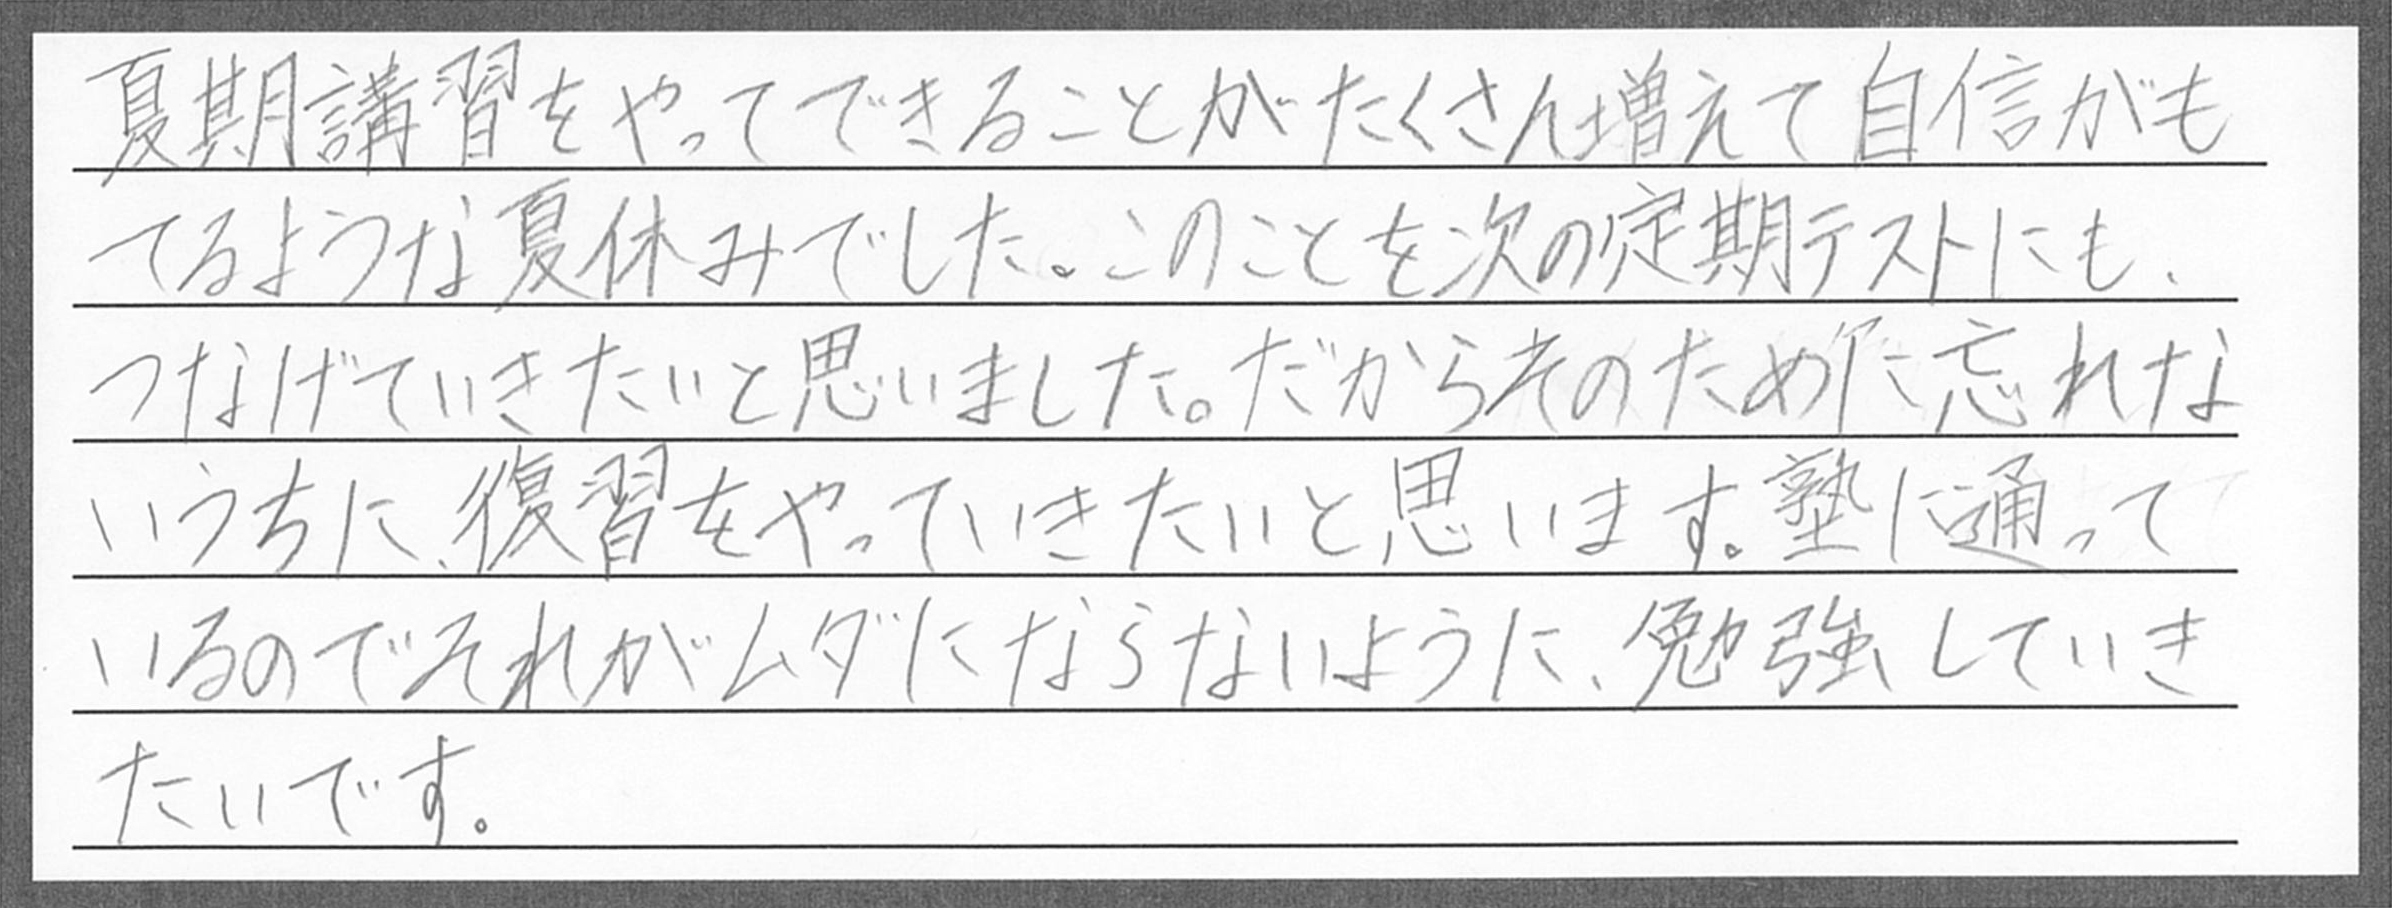 夏期講習をやってできることがたくさん増えて自信がも
てるような夏休みでした。このことを次の定期テストにも、
つなげていきたいと思いました。だからそのために忘れな
いうちに、復習をやっていきたいと思います。塾に通って
いるのでそれがムダにならないように、勉強していき
たいです。